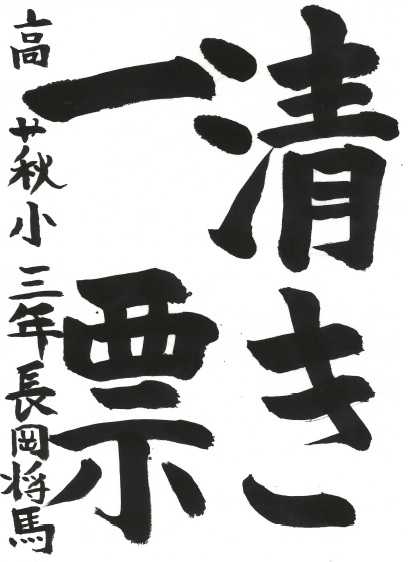 清き
一票
高萩小 三年 長岡将馬